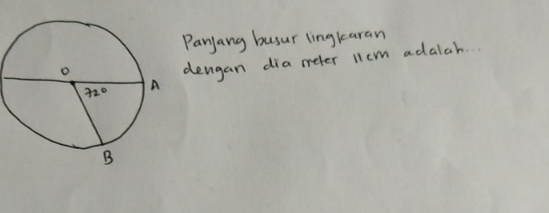 Panjang busur lingkaran
dengan dia meter 11 cm adalah...
O
72°
A
B